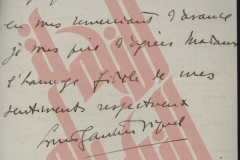 en vous remerciant d'avance
je vous prie d'agréer Madame
l'hommage fidèle de mes
sentiments respectueux